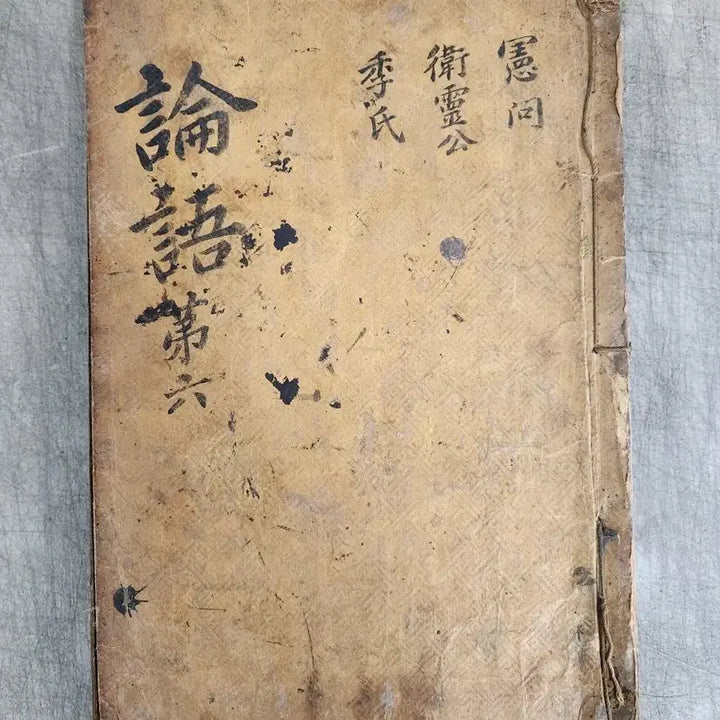 憲問
衛靈公
季氏
論語第六